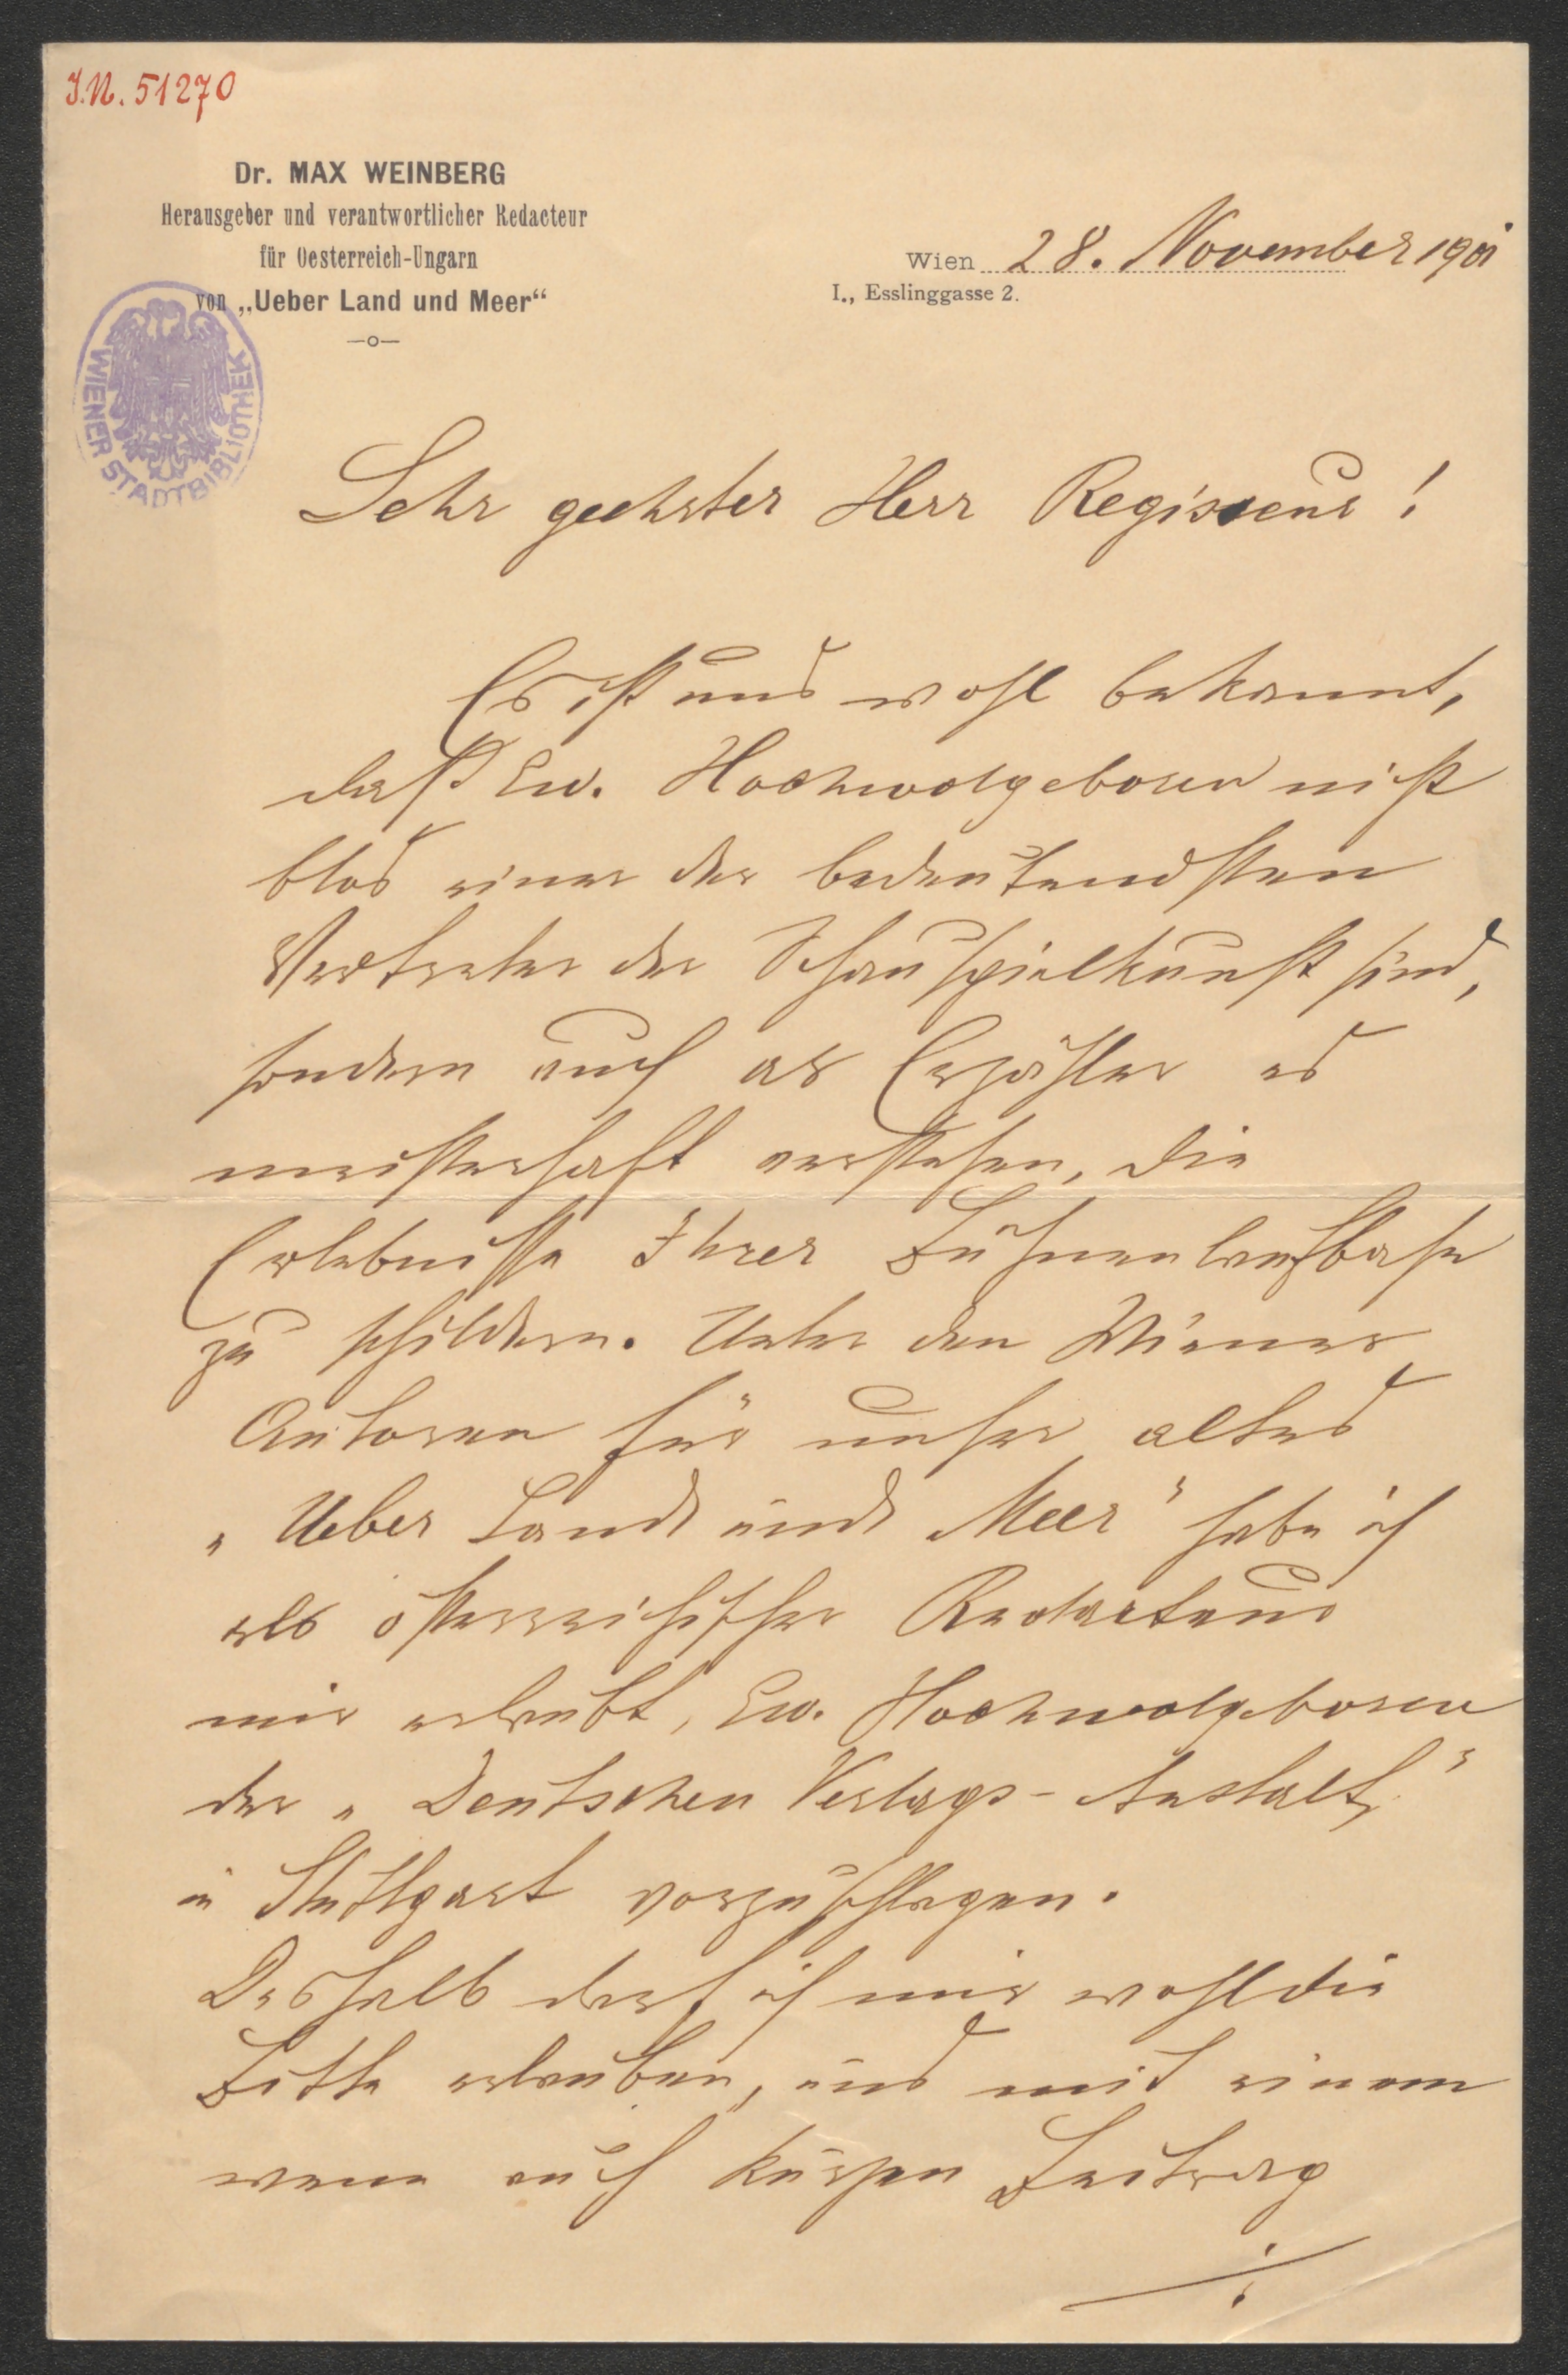 J.N. 51270
Dr. MAX WEINBERG
Herausgeber und verantwortlicher Redacteur
für Oesterreich-Ungarn
von „Ueber Land und Meer“
—o—
Wien 28. November 1901
I., Esslinggasse 2.
WIENER STADTBIBLIOTHEK
Sehr geehrter Herr Regisseur!
Es ist uns wohl bekannt,
daß Ew. Hochwolgeboren nicht
blos einer der bedeutendsten
Vertreter der Schauspielkunst sind,
sondern auch als Erzähler es
meisterhaft verstehen, die
Erlebnisse Ihrer Bühnenlaufbahn
zu schildern. Unter den Wiener
Autoren für unser altes
„Ueber Land und Meer“ habe ich
als österreichischer Redacteur
mir erlaubt, Ew. Hochwolgeboren
der „Deutschen Verlags-Anstalt“
in Stuttgart vorzuschlagen.
Deshalb darf ich mir wohl die
Bitte erlauben, uns mit einem
wenn auch kurzen Beitrag
./.